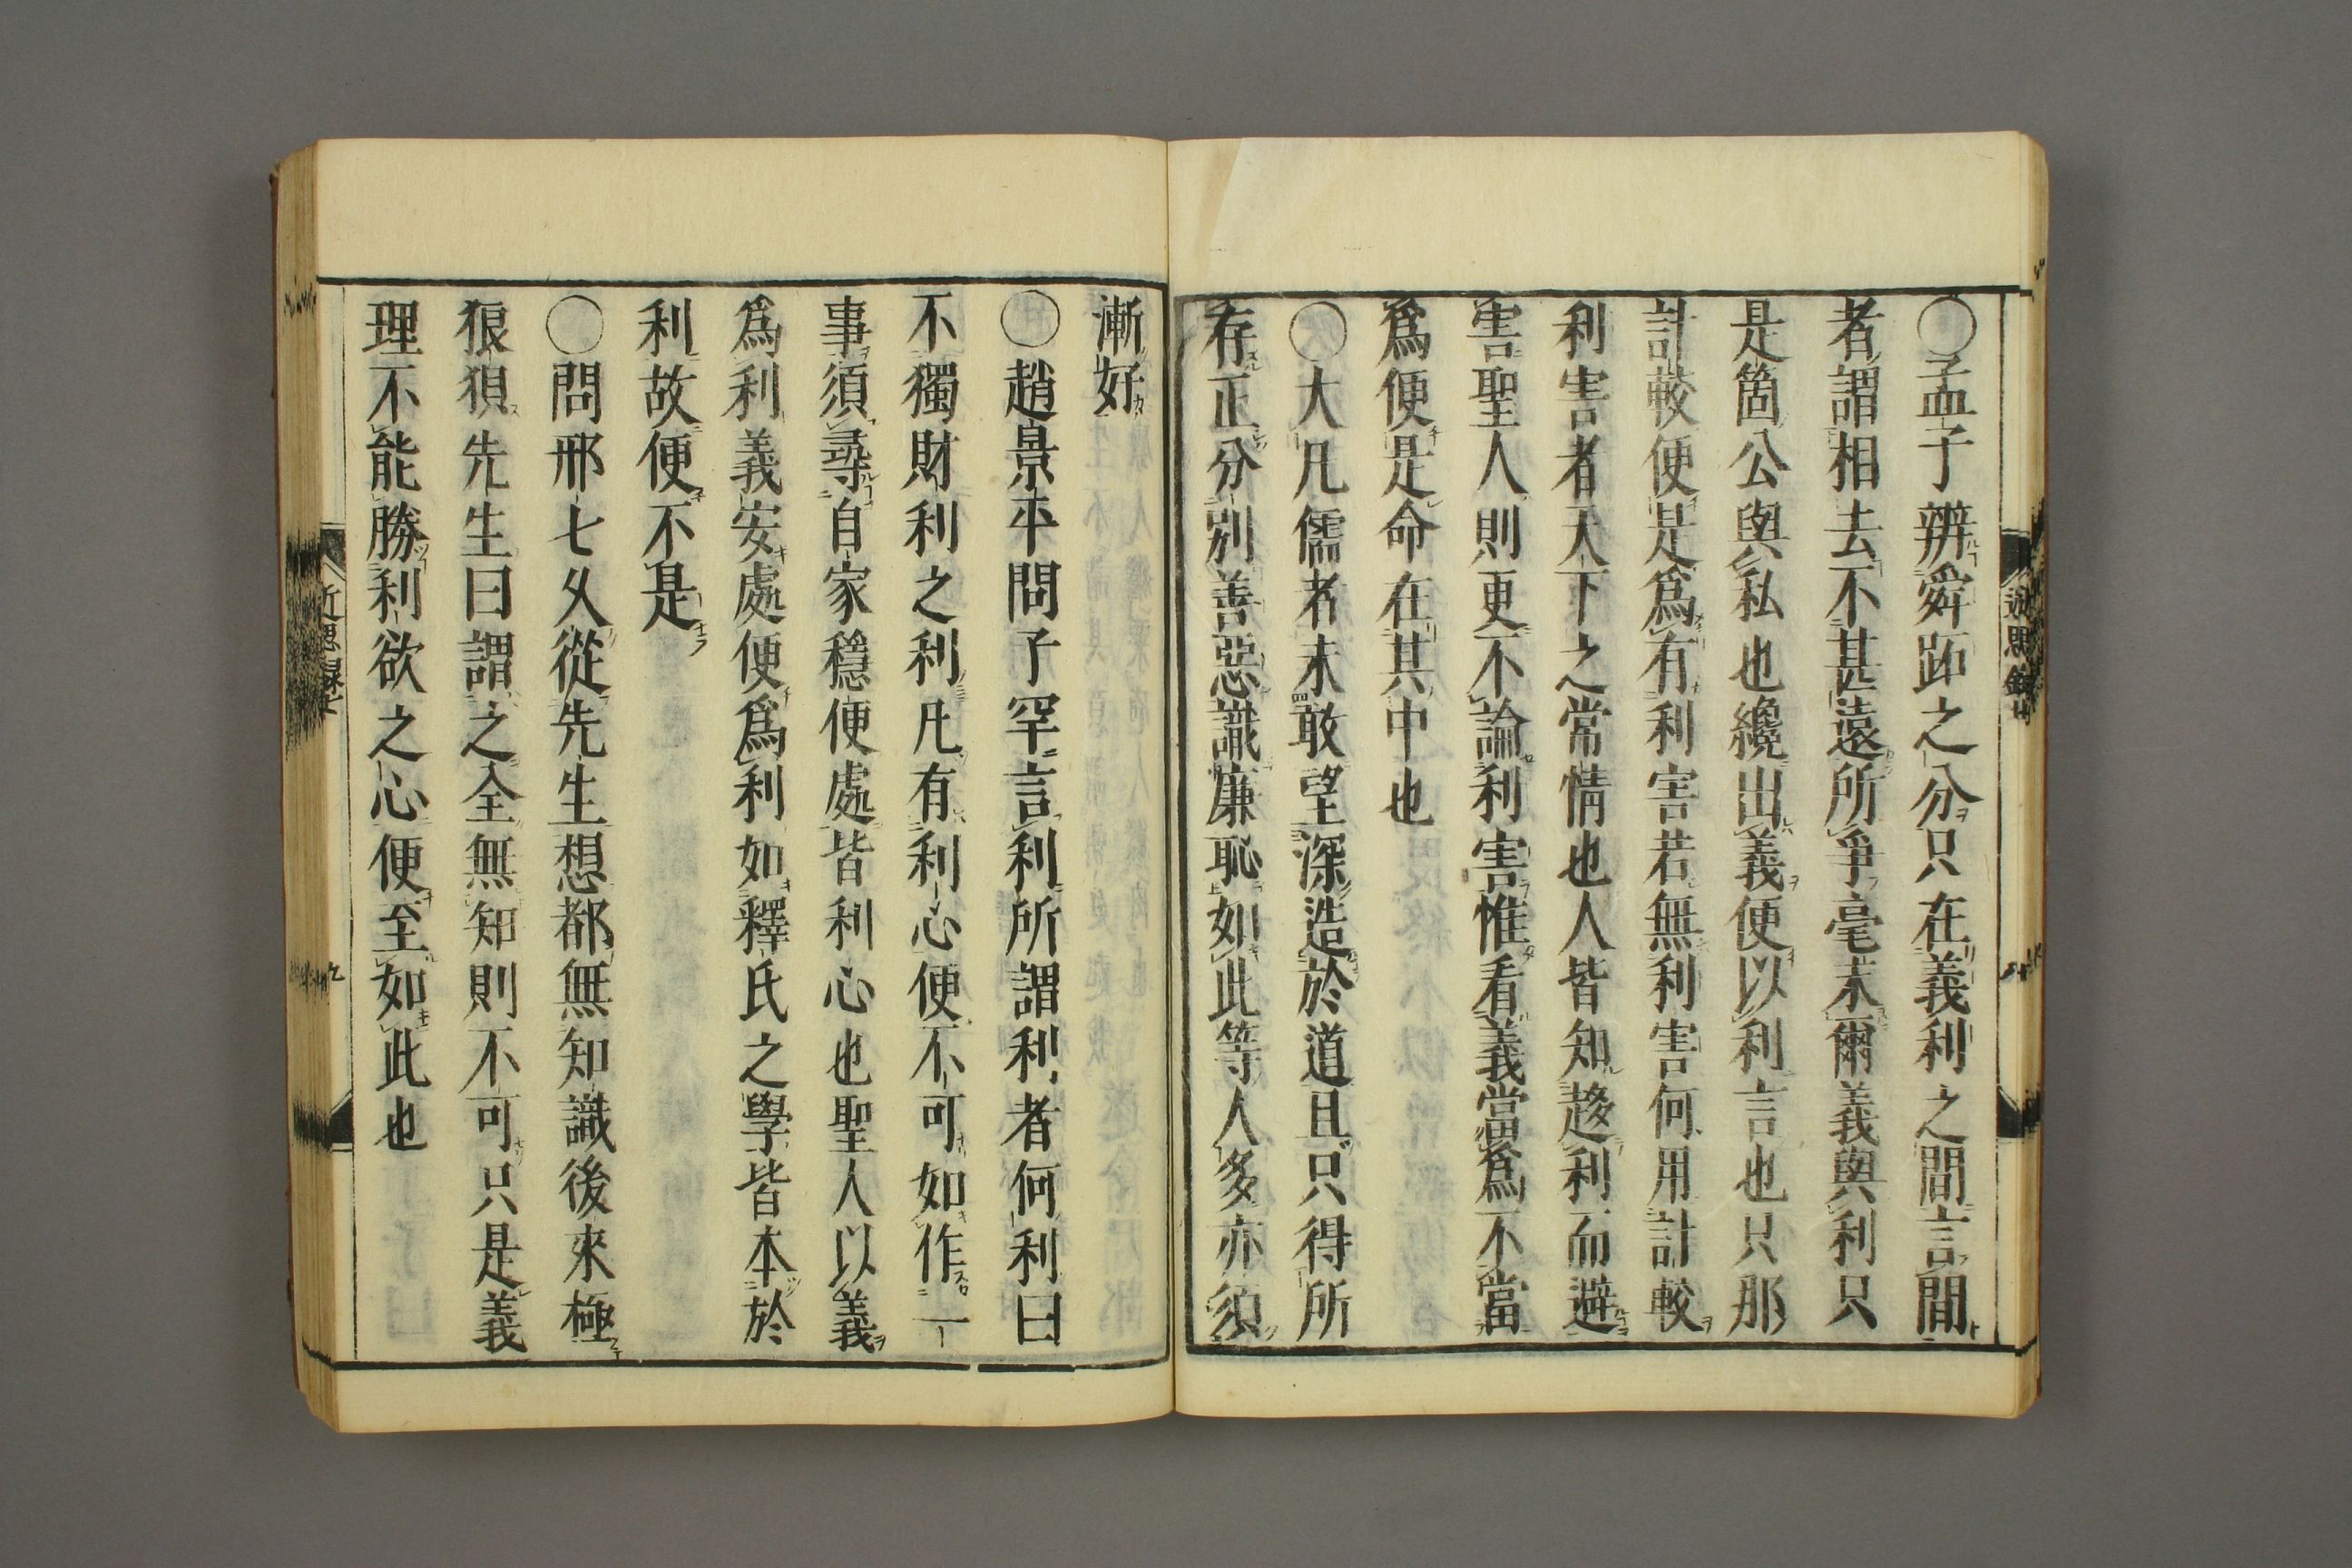 〇孟子辨舜跖之分只在義利之間言間
者謂相去不甚遠所爭毫末爾義與利只
是箇公與私也纔出義便以利言也只那
計較便是爲有利害若無利害何用計較
利害者天下之常情也人皆知趍利而避
害聖人則更不論利害惟看義當爲不當
爲便是命在其中也
〇大凡儒者未敢望深造於道且只得所
存正分別善惡識廉恥如此等人多亦須
漸好
〇趙景平問子罕言利所謂利者何利曰
不獨財利之利凡有利心便不可如作一
事須尋自家穩便處皆利心也聖人以義
爲利義安處便爲利如釋氏之學皆本於
利故便不是
〇問邢七久從先生想都無知識後來極
狼狽先生曰謂之全無知則不可只是義
理不能勝利欲之心便至如此也
近思錄七
九